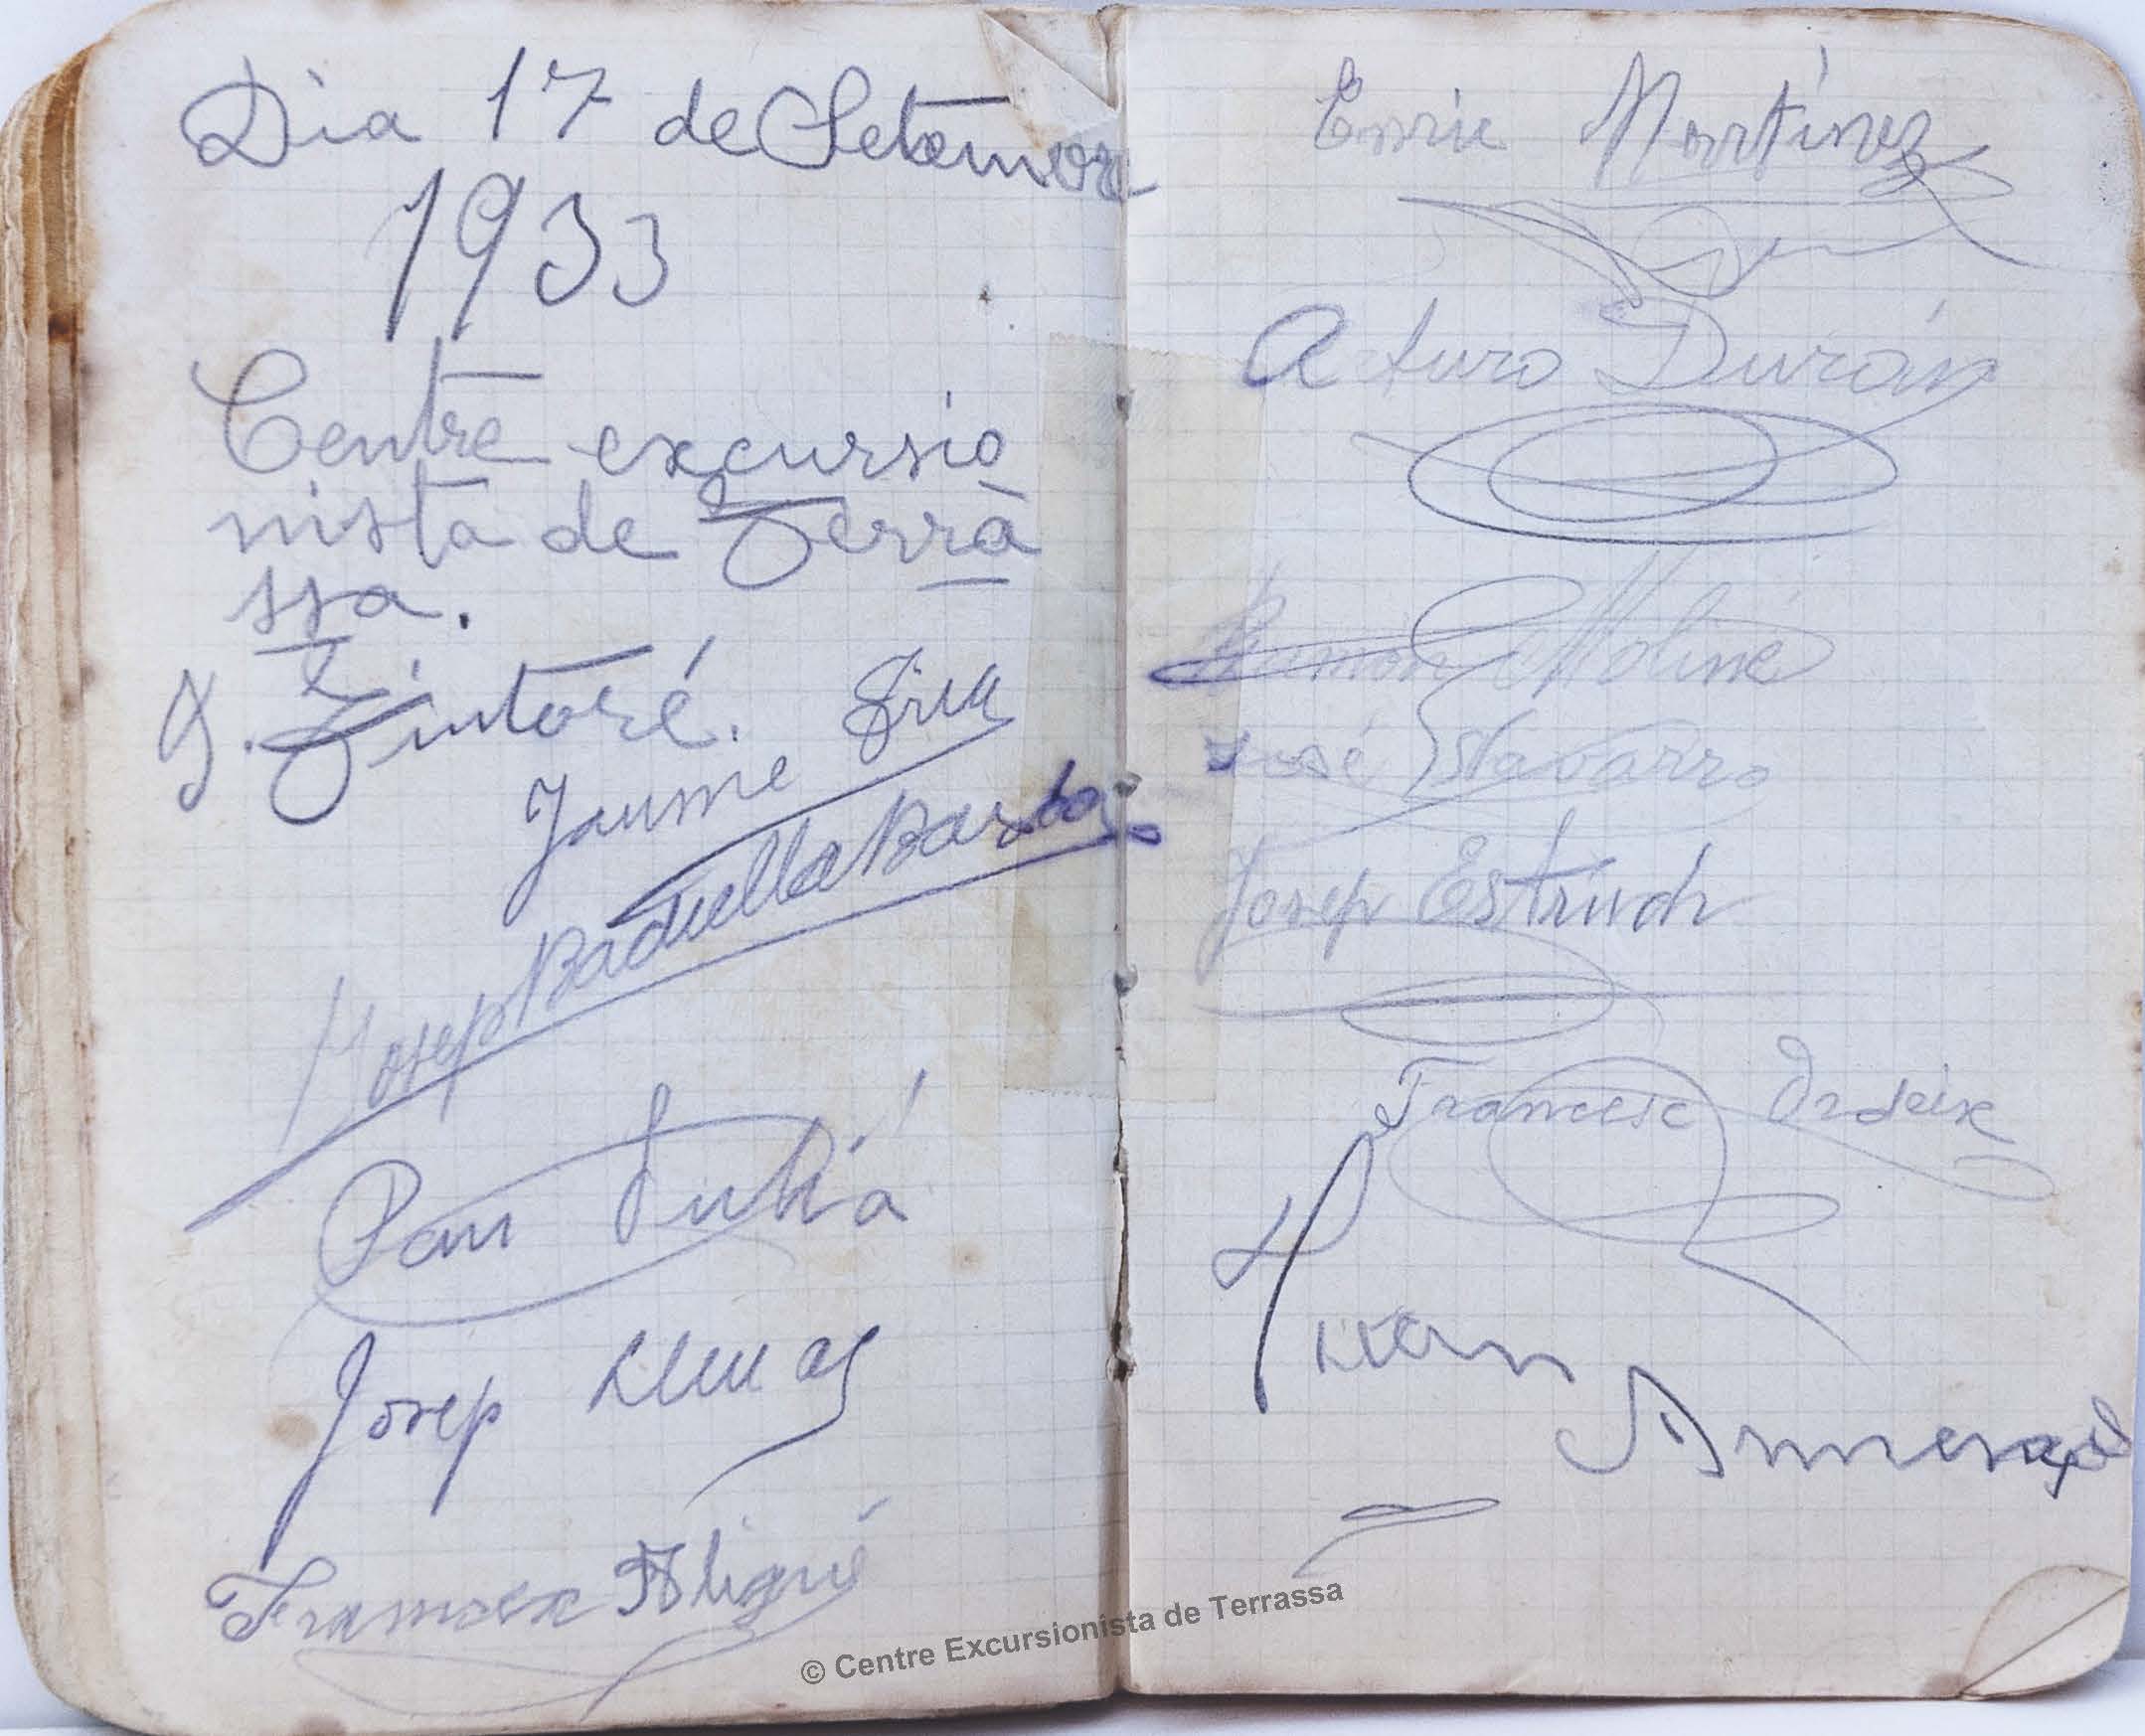 Dia 17 de Setembre
1933
Centre excursio
nista de Terrà
ssa.
J. Tintoré.
Jaume Grua
Josep Badiella Barba
Pau Juliá
Josep Llunas
Francesc Aligué
Enric Martínez
Arturo Durán
Ramon Moliné
José Navarro
Josep Estruch
Francesc Ordeix
Juan
Armengol
© Centre Excursionista de Terrassa